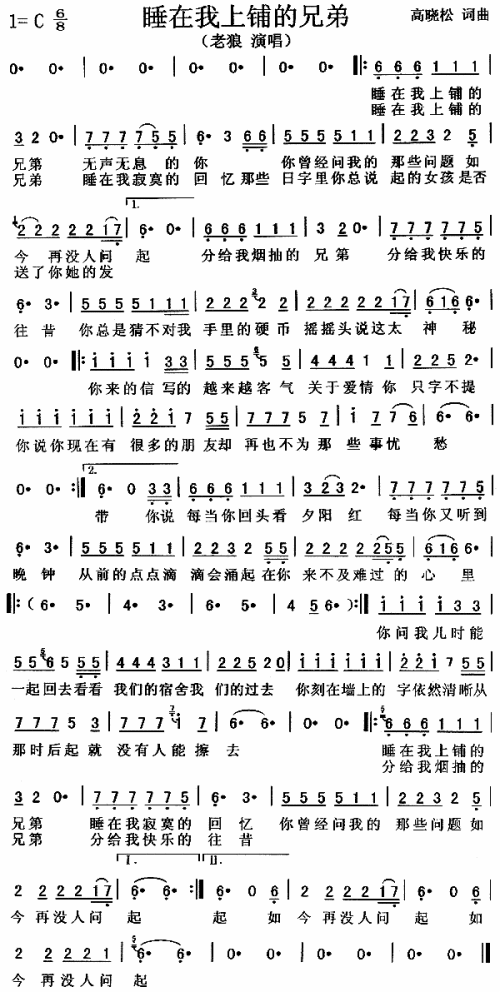 睡在我上铺的兄弟
1=C 6/8
高晓松 词曲
(老狼 演唱)
0· 0· | 0· 0· | 0· 0· | 0· 0· |: 6 6 6 1 1 1 |
睡在我上铺的
睡在我上铺的
3 2 0· | 7 7 7 7 5 5 | 6· 3 6 6 | 5 5 5 5 1 1 | 2 2 3 2 5 |
兄第 无声无息的你 你曾经问我的那些问题如
兄弟 睡在我寂寞的回忆那些日字里你总说起的女孩是否
1.
2 2 2 2 2 1 7 | 6· 0· | 6 6 6 1 1 1 | 3 2 0· | 7 7 7 7 7 5 |
今再没人问起 分给我烟抽的兄第 分给我快乐的
送了你她的发
6· 3· | 5 5 5 5 1 1 1 | 2 2 2 2 2 | 2 2 2 2 2 1 7 | 6 1 6 6· |
往昔 你总是猜不对我手里的硬币 摇摇头说这太神秘
0· 0· |: 1 1 1 1 3 3 | 2 2 5 5 5 | 4 4 4 1 1 | 2 2 5 2· |
你来的信写的越来越客气关于爱情你只字不提
1 1 1 1 1 1 | 2 2 1 7 5 5 | 7 7 7 5 7 | 1 7 7 6 | 6· 6· |
你说你现在有很多的朋友却再也不为那些事忧愁
2.
0· 0· :| 6· 0 3 3 | 6 6 6 1 1 1 | 3 2 3 2 0· | 7 7 7 7 7 5 |
带 你说每当你回头看夕阳红 每当你又听到
6· 3· | 5 5 5 5 1 1 | 2 2 2 2 5 5 | 2 2 2 2 2 5 5 | 6 1 6 6· |
晚钟 从前的点点滴滴会涌起在你来不及难过的心里
|: ( 6· 5· | 4· 3· | 6· 5· | 4 5 6· ) :| 1 1 1 1 3 3 |
你问我几时能
5 5 6 5 5 5 | 4 4 4 3 1 1 | 2 2 5 2 0 | 1 1 1 1 1 1 | 2 2 1 7 5 5 |
一起回去看看我们的宿舍我们的过去 你刻在墙上的字依然清晰从
7 7 7 5 3 | 7 7 7 1 7 | 6· 6· | 0· 0· |: 6 6 6 1 1 1 |
那时后起就没有人能擦去 睡在我上铺的
分给我烟抽的
3 2 0· | 7 7 7 7 7 5 | 6· 3· | 5 5 5 5 1 1 | 2 2 3 2 5 |
兄第 睡在我寂寞的回忆 你曾经问我的那些问题如
兄第 分给我快乐的往昔
I. II.
2 2 2 2 1 7 | 6· 6· :| 6· 0 6 | 2 2 2 2 1 7 | 6· 0 6 |
今再没人问起 起 如今再没人问起 如
2 2 2 2 1 | 6· 6· | 0· 0· | 0· 0· | 0· 0· :|
今再没人问起